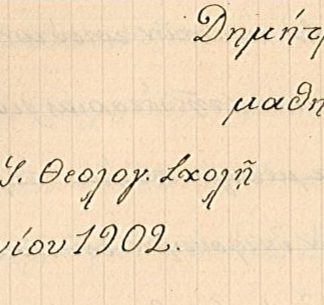 Δημήτρ
μαθη
Ἱ. Θεολογ. Σχολῇ
νίου 1902.